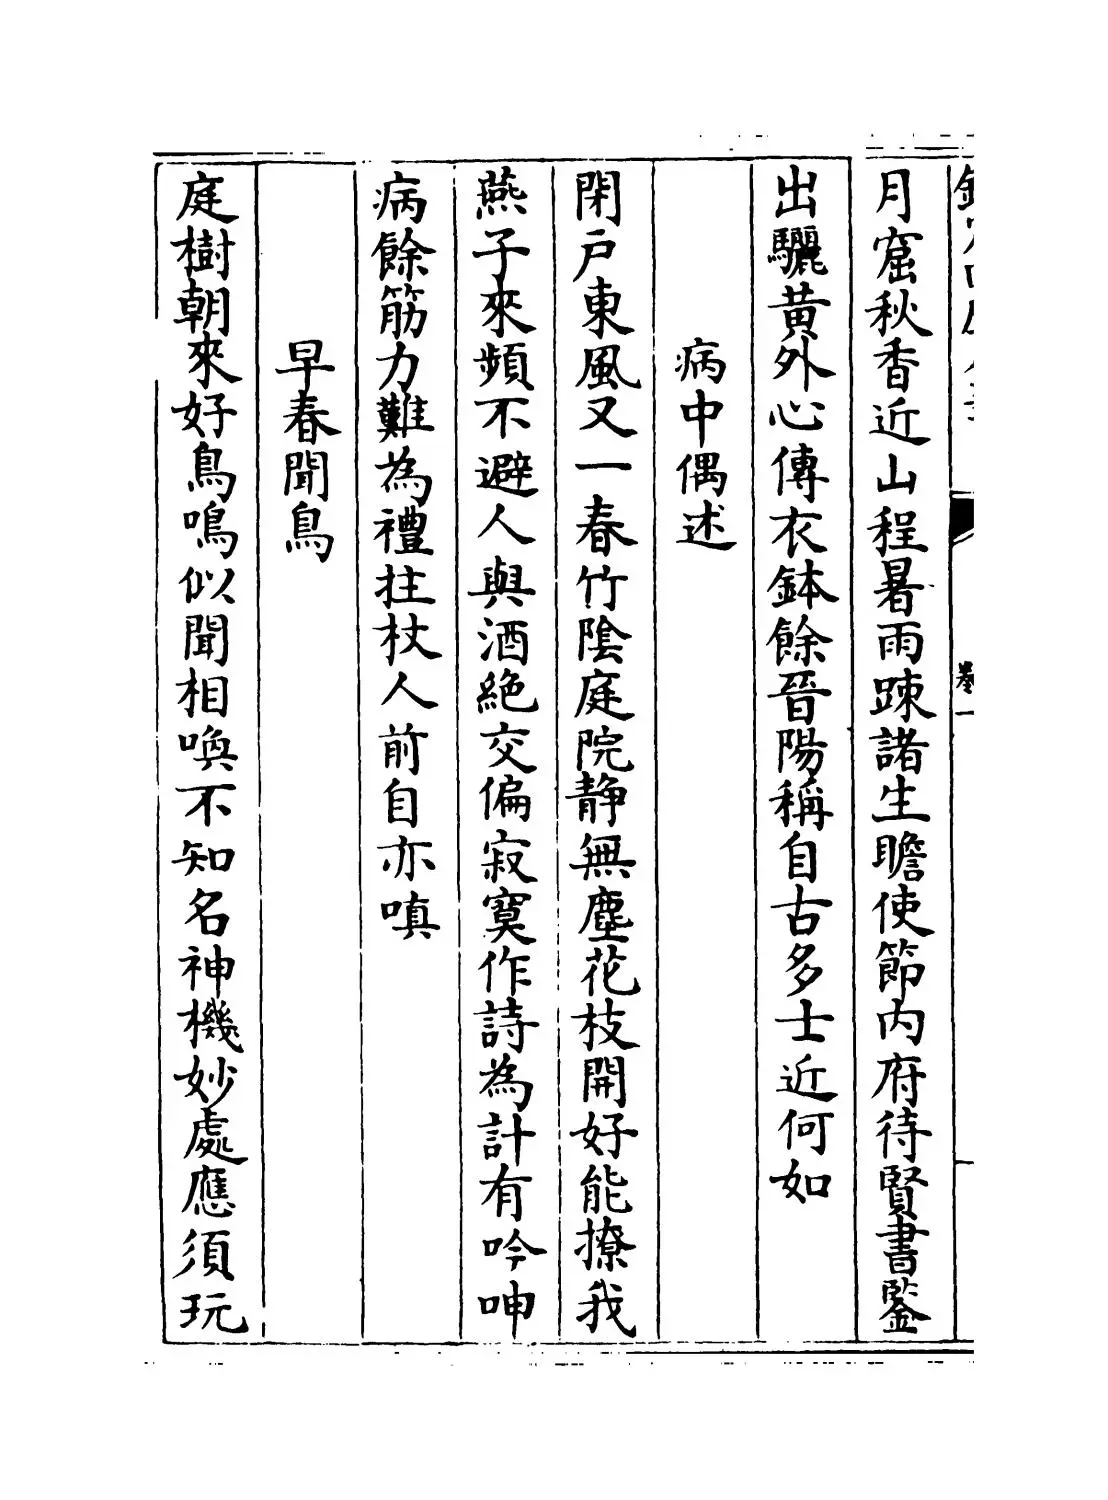 月窟秋香近山程暑雨踈諸生瞻使節内府待賢書鑒
出驪黄外心傳衣鉢餘晉陽稱自古多士近何如
病中偶述
閑戸東風又一春竹陰庭院静無塵花枝開好能撩我
燕子來頻不避人與酒絶交偏寂寞作詩為計有吟呻
病餘筋力難為禮拄杖人前自亦嗔
早春聞鳥
庭樹朝來好鳥鳴似聞相喚不知名神機妙處應須玩
卷一